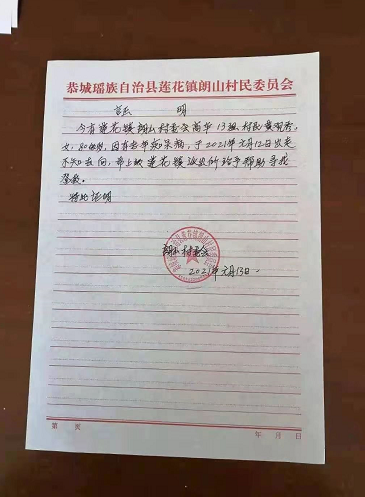 恭城瑶族自治县莲花镇朗山村民委员会
证 明
今有莲花镇朗山村委会高华13组村民黄
女,80岁,因有老年痴呆病,于2021年元月12日出走
不知去向,希上级莲花镇派出所给予帮助寻找
特此证明
朗山村委会
2021年元月13日
第 页 年 月 日